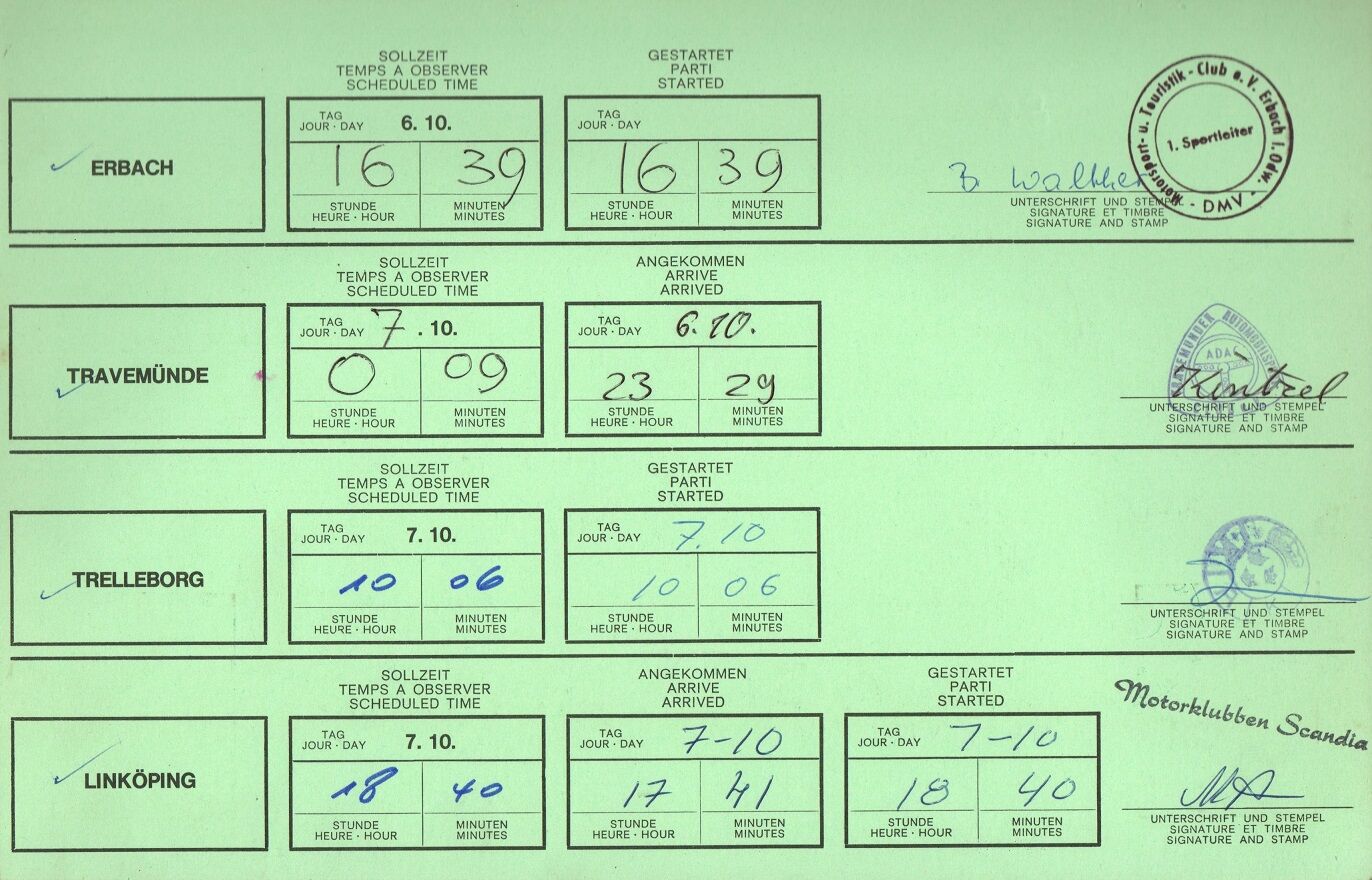 SOLLZEIT
TEMPS A OBSERVER
SCHEDULED TIME
GESTARTET
PARTI
STARTED
ERBACH
TAG
JOUR · DAY 6. 10.
16 39
STUNDE MINUTEN
HEURE · HOUR MINUTES
TAG
JOUR · DAY
16 39
STUNDE MINUTEN
HEURE · HOUR MINUTES
B. Walther
UNTERSCHRIFT UND STEMPEL
SIGNATURE ET TIMBRE
SIGNATURE AND STAMP
Motorsport- u. Touristik - Club e. V. Erbach i. Odw.
1. Sportleiter
- DMV -
SOLLZEIT
TEMPS A OBSERVER
SCHEDULED TIME
ANGEKOMMEN
ARRIVE
ARRIVED
TRAVEMÜNDE
TAG
JOUR · DAY 7 . 10.
0 09
STUNDE MINUTEN
HEURE · HOUR MINUTES
TAG
JOUR · DAY 6. 10.
23 29
STUNDE MINUTEN
HEURE · HOUR MINUTES
ADAC
UNTERSCHRIFT UND STEMPEL
SIGNATURE ET TIMBRE
SIGNATURE AND STAMP
SOLLZEIT
TEMPS A OBSERVER
SCHEDULED TIME
GESTARTET
PARTI
STARTED
TRELLEBORG
TAG
JOUR · DAY 7. 10.
10 06
STUNDE MINUTEN
HEURE · HOUR MINUTES
TAG
JOUR · DAY 7. 10
10 06
STUNDE MINUTEN
HEURE · HOUR MINUTES
UNTERSCHRIFT UND STEMPEL
SIGNATURE ET TIMBRE
SIGNATURE AND STAMP
SOLLZEIT
TEMPS A OBSERVER
SCHEDULED TIME
ANGEKOMMEN
ARRIVE
ARRIVED
GESTARTET
PARTI
STARTED
LINKÖPING
TAG
JOUR · DAY 7. 10.
18 40
STUNDE MINUTEN
HEURE · HOUR MINUTES
TAG
JOUR · DAY 7-10
17 41
STUNDE MINUTEN
HEURE · HOUR MINUTES
TAG
JOUR · DAY 7-10
18 40
STUNDE MINUTEN
HEURE · HOUR MINUTES
Motorklubben Scandia
UNTERSCHRIFT UND STEMPEL
SIGNATURE ET TIMBRE
SIGNATURE AND STAMP